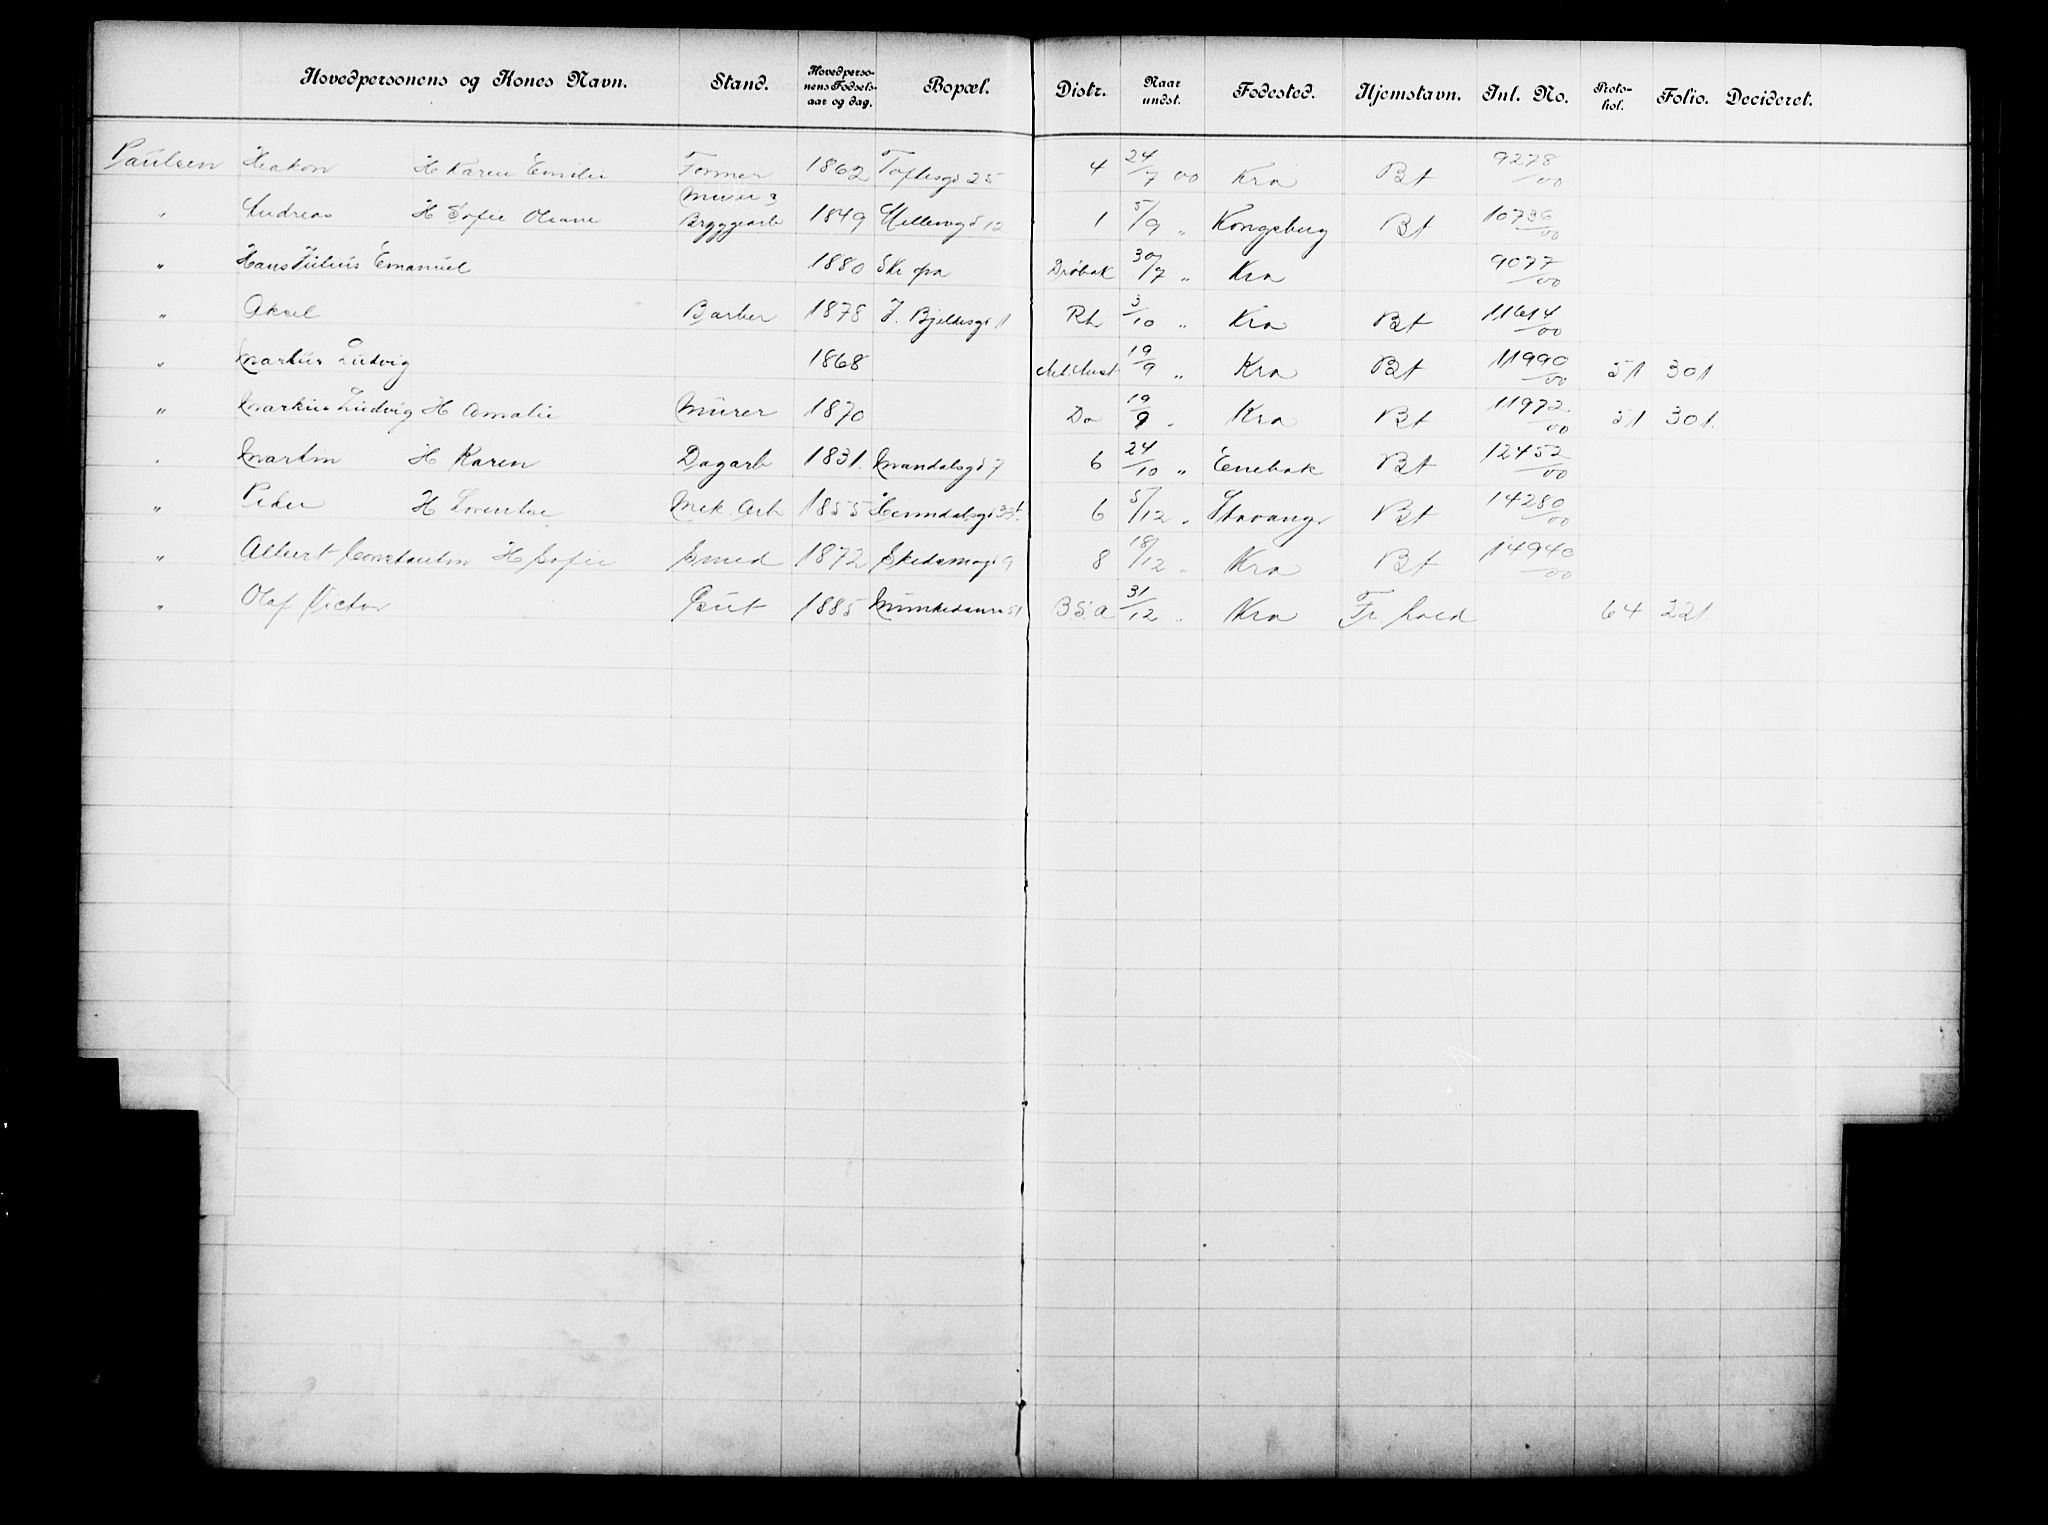 Hovedpersonens og Kones Navn. Stand. Hovedperso-nens Fødsels-aar og dag. Bopæl. Distr. Naar undst. Fødested. Hjemstavn. Inl. No. Proto-kol. Folio. Decideret.
Paulsen Haakon H Karen Emilie Former 1862 Toftesgd 25 4 24/7 00 Kra Bt 9278/00
" Andreas H Sofie Oleane Bryggearb 1849 Møllergd 12 1 5/9 " Kongsberg Bt 10736/00
" Hans Julius Emanuel 1880 Drøbak 30/7 " Kra 9077/00
" Aksel Barber 1878 J. Bjelkesgd 1 Rh 3/10 " Kra Bt 11614/00
" Markus Ludvig 1868 19/9 " Kra Bt 11990/00 51 301
" Markus Ludvig H Amalie Murer 1870 Do 19/9 " Kra Bt 11972/00 51 301.
" Martin H Karen Dagarb 1831. Mandalsgd 7 6 24/10 " Enebak Bt 12452/00
" Peder H Lorentse Mek. Arb 1855 Heimdalsgd 6 5/12 " Stavanger Bt 14280/00
" Albert Constantin H Sofie Smed 1872 Skedsmogd 9 8 18/12 " Kra Bt 14940/00
" Olaf Victor Gut 1885 Munkedamsv 51 B.S.a 31/12 " Kra Fr. hold 64 221.